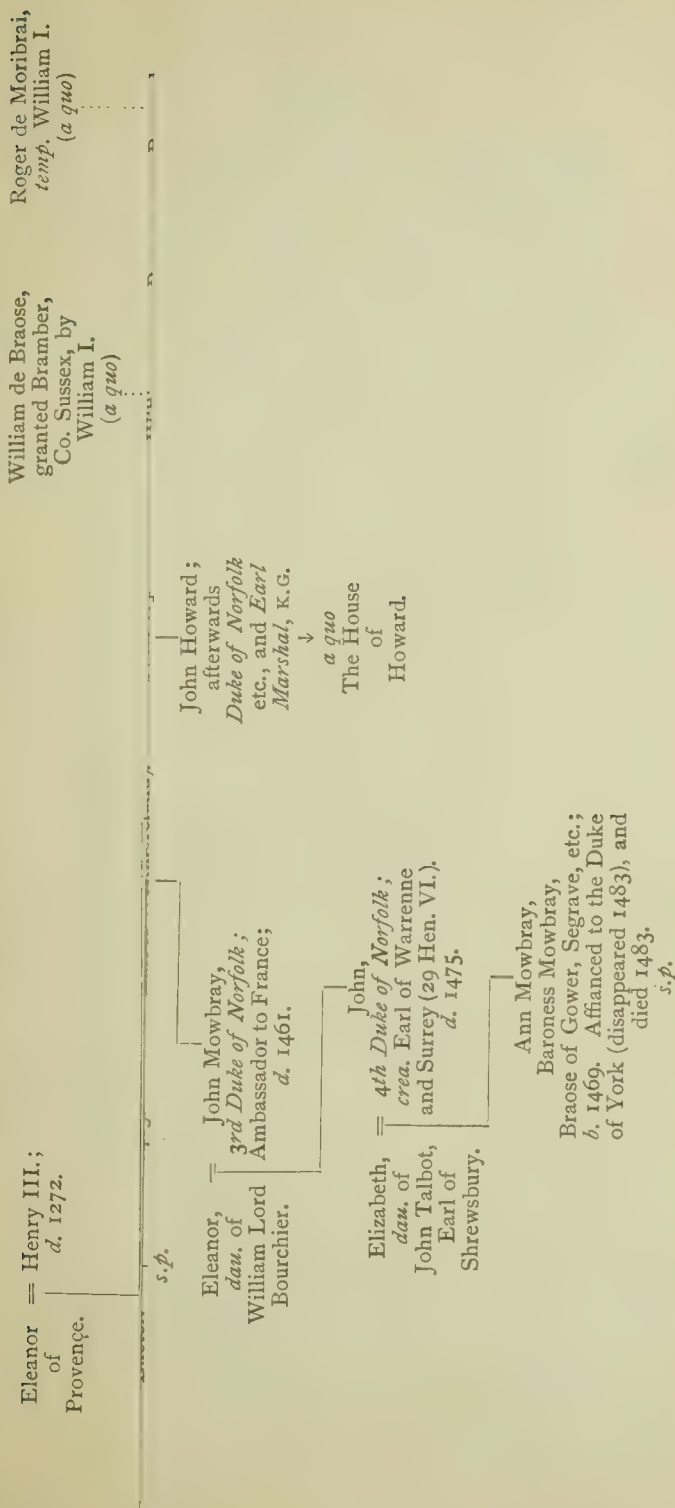 Eleanor = Henry III.;
of d. 1272.
Provençe.
William de Braose,
granted Bramber,
Co. Sussex, by
William I.
(a quo)
Roger de Moribrai,
temp. William I.
(a quo)
s.p.
Eleanor,
dau. of
William Lord
Bourchier.
= John Mowbray,
3rd Duke of Norfolk;
Ambassador to France;
d. 1461.
John Howard;
afterwards
Duke of Norfolk
etc., and Earl
Marshal, K.G.
↓
a quo
The House
of
Howard.
Elizabeth,
dau. of
John Talbot,
Earl of
Shrewsbury.
John,
= 4th Duke of Norfolk;
crea. Earl of Warrenne
and Surrey (29 Hen. VI.).
d. 1475.
Ann Mowbray,
Baroness Mowbray,
Braose of Gower, Segrave, etc.;
b. 1469. Affianced to the Duke
of York (disappeared 1483), and
died 1483.
s.p.